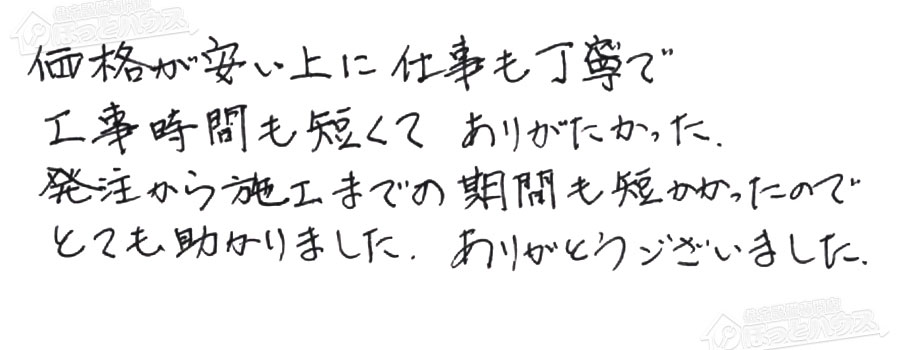 価格が安い上に仕事も丁寧で
工事時間も短くて ありがたかった.
発注から施工までの期間も短かかったので
とても助かりました. ありがとうございました.
ほっとハウス
ほっとハウス